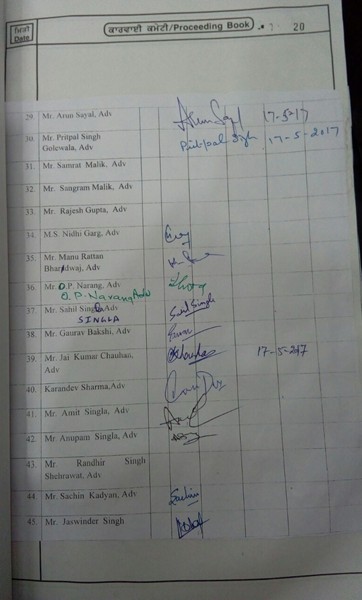 ਮਿਤੀ
Date
ਕਾਰਵਾਈ ਕਮੇਟੀ/Proceeding Book
20
29. Mr. Arun Sayal, Adv Arun Sayal 17-5-17
30. Mr. Pritpal Singh
Golewala, Adv Pritpal Singh 17-5-2017
31. Mr. Samrat Malik, Adv
32. Mr. Sangram Malik, Adv
33. Mr. Rajesh Gupta, Adv
34. M.S. Nidhi Garg, Adv
35. Mr. Manu Rattan
Bhardwaj, Adv
36. Mr. O.P. Narang, Adv
O.P. Narang Adv
37. Mr. Sahil Singla, Adv Sahil Singla
SINGLA
38. Mr. Gaurav Bakshi, Adv
39. Mr. Jai Kumar Chauhan,
Adv 17-5-2017
40. Karandev Sharma,Adv
41. Mr. Amit Singla, Adv
42. Mr. Anupam Singla, Adv
43. Mr. Randhir Singh
Shehrawat, Adv
44. Mr. Sachin Kadyan, Adv Sachin
45. Mr. Jaswinder Singh